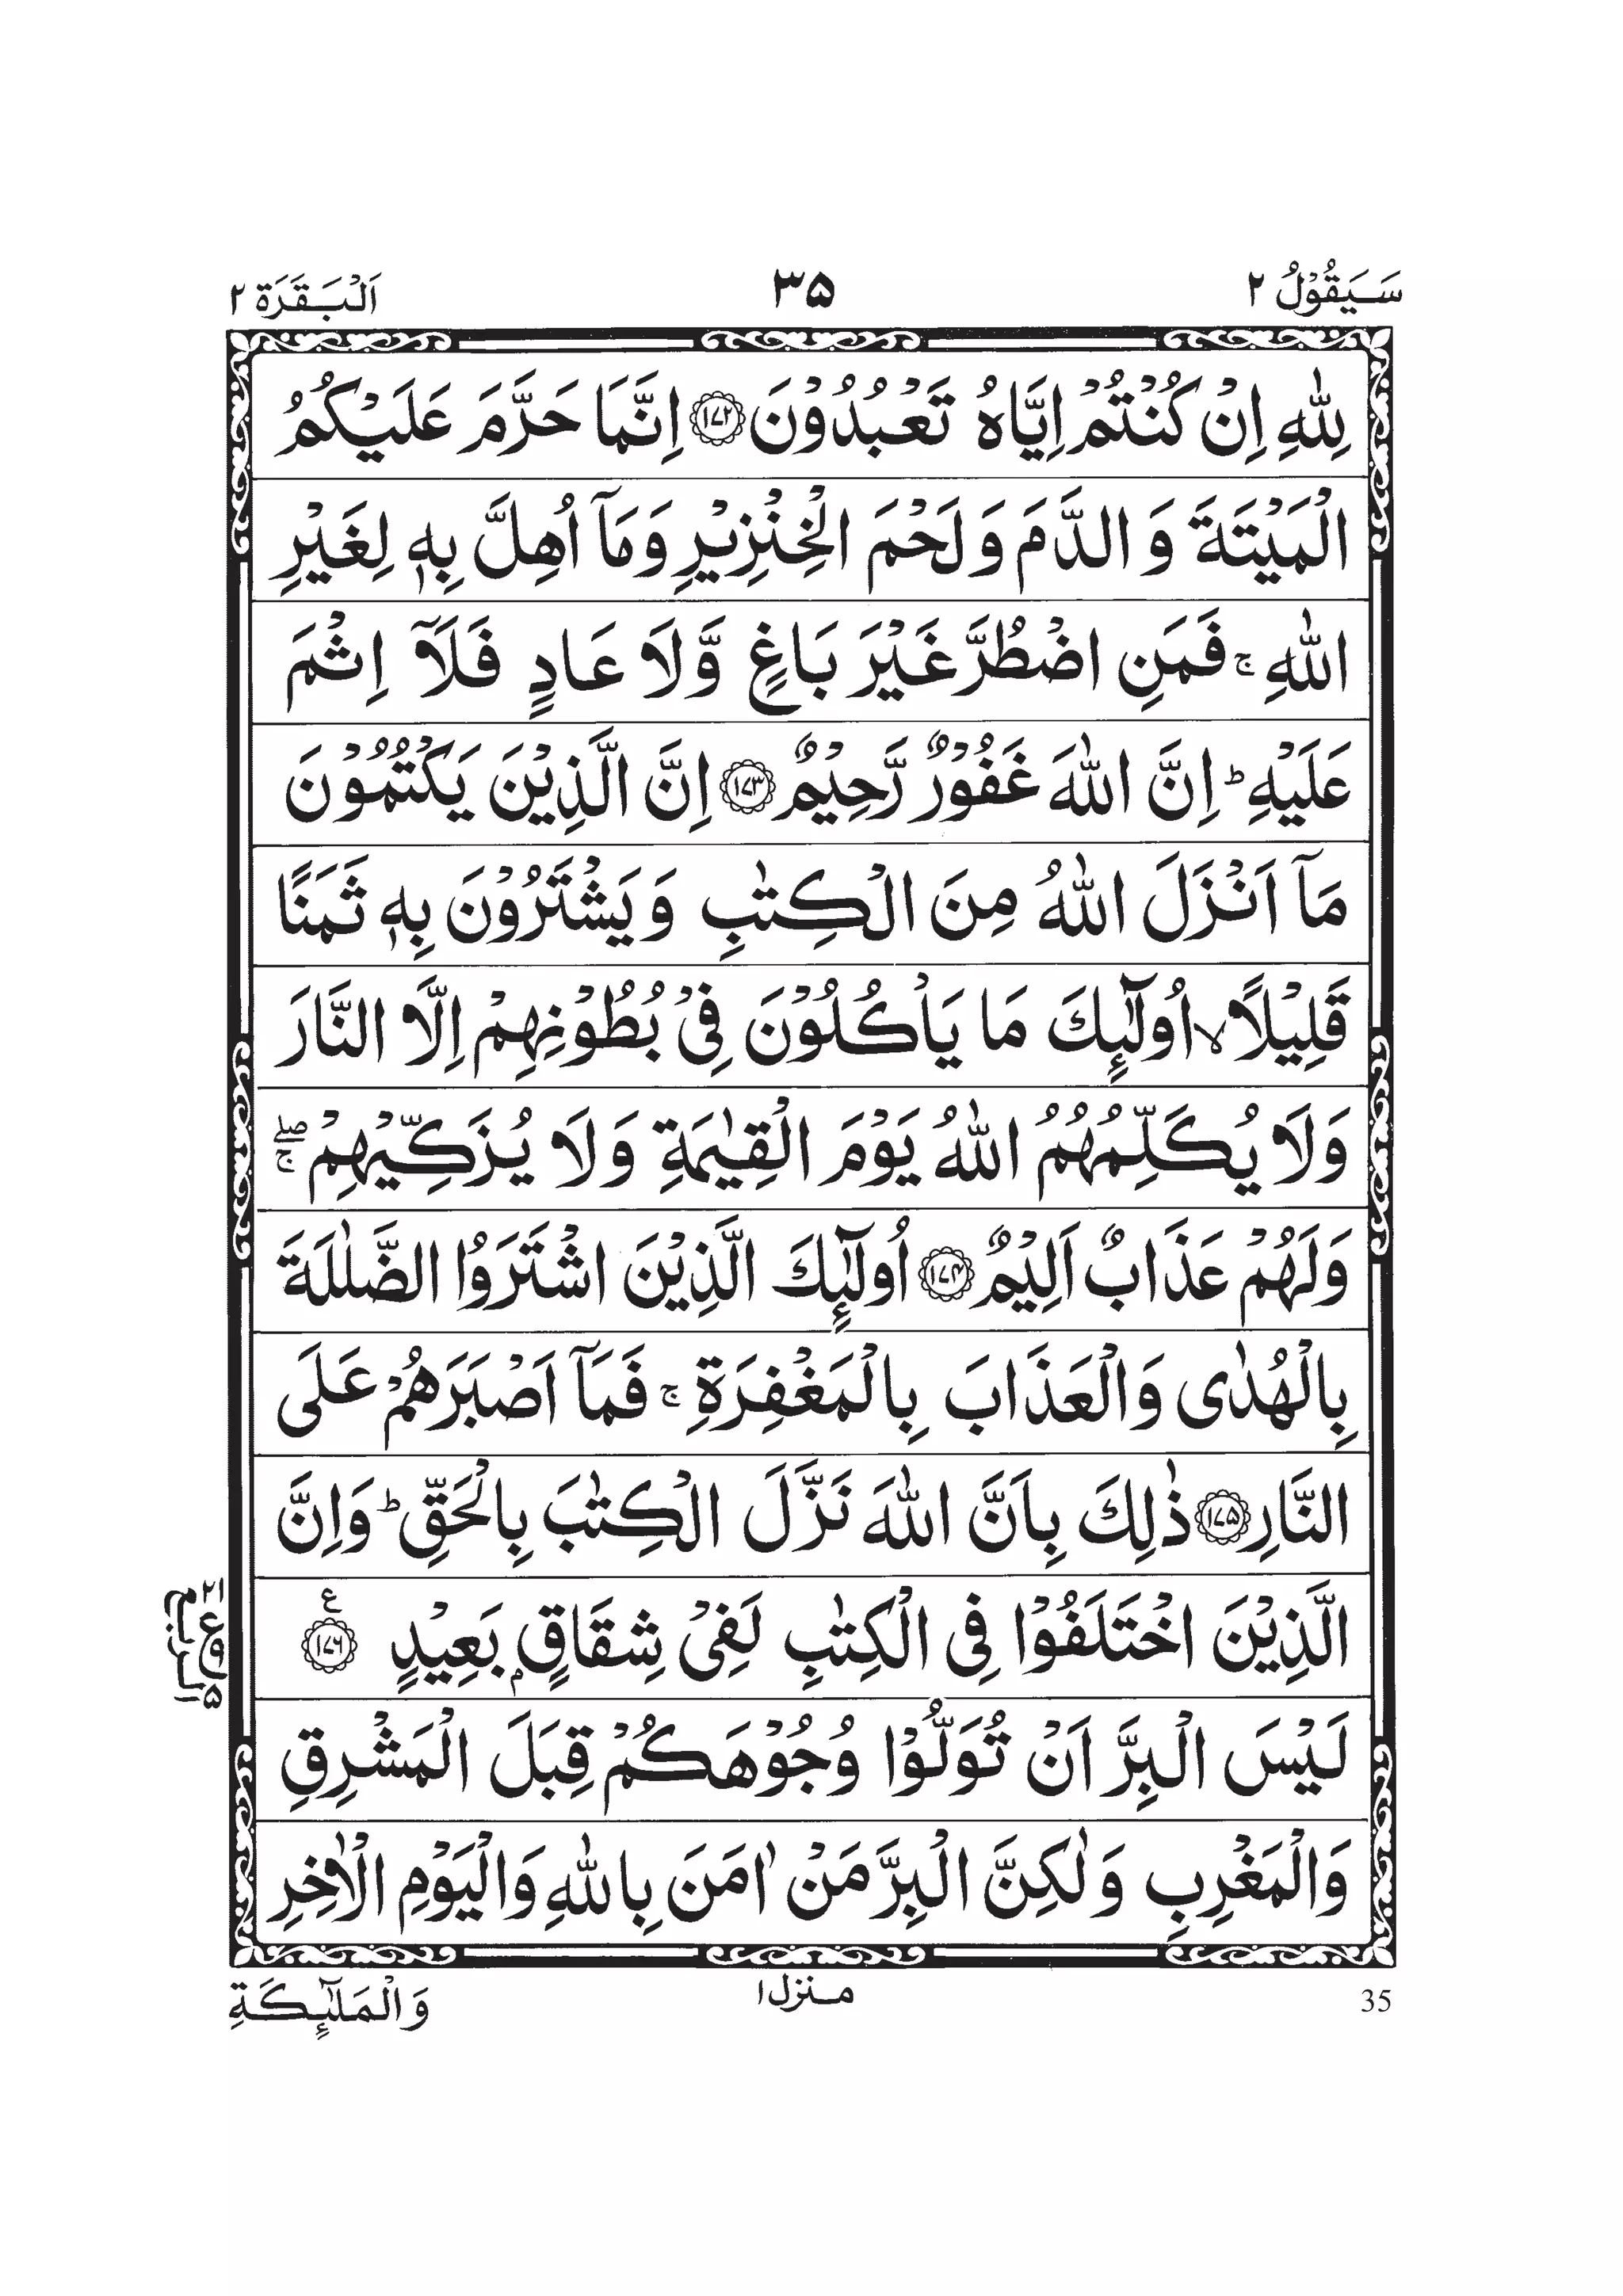 سَيَقُوْلُ ٢
٣٥
اَلْبَقَرَة ٢
لِلّٰهِ اِنْ كُنْتُمْ اِيَّاهُ تَعْبُدُوْنَ ﴿١٧٢﴾ اِنَّمَا حَرَّمَ عَلَيْكُمُ
الْمَيْتَةَ وَ الدَّمَ وَ لَحْمَ الْخِنْزِيْرِ وَمَاۤ اُهِلَّ بِهٖ لِغَيْرِ
اللّٰهِ ۚ فَمَنِ اضْطُرَّ غَيْرَ بَاغٍ وَّلَا عَادٍ فَلَاۤ اِثْمَ
عَلَيْهِ ؕ اِنَّ اللّٰهَ غَفُوْرٌ رَّحِيْمٌ ﴿١٧٣﴾ اِنَّ الَّذِيْنَ يَكْتُمُوْنَ
مَاۤ اَنْزَلَ اللّٰهُ مِنَ الْكِتٰبِ وَيَشْتَرُوْنَ بِهٖ ثَمَنًا
قَلِيْلًا ۙ اُولٰٓئِكَ مَا يَاْكُلُوْنَ فِيْ بُطُوْنِهِمْ اِلَّا النَّارَ
وَلَا يُكَلِّمُهُمُ اللّٰهُ يَوْمَ الْقِيٰمَةِ وَلَا يُزَكِّيْهِمْ ۖۚ
وَلَهُمْ عَذَابٌ اَلِيْمٌ ﴿١٧٤﴾ اُولٰٓئِكَ الَّذِيْنَ اشْتَرَوُا الضَّلٰلَةَ
بِالْهُدٰى وَالْعَذَابَ بِالْمَغْفِرَةِ ۚ فَمَاۤ اَصْبَرَهُمْ عَلَى
النَّارِ ﴿١٧٥﴾ ذٰلِكَ بِاَنَّ اللّٰهَ نَزَّلَ الْكِتٰبَ بِالْحَقِّ ؕ وَاِنَّ
الَّذِيْنَ اخْتَلَفُوْا فِى الْكِتٰبِ لَفِيْ شِقَاقٍۭ بَعِيْدٍ ﴿١٧٦﴾ ع
لَيْسَ الْبِرَّ اَنْ تُوَلُّوْا وُجُوْهَكُمْ قِبَلَ الْمَشْرِقِ
وَالْمَغْرِبِ وَلٰكِنَّ الْبِرَّ مَنْ اٰمَنَ بِاللّٰهِ وَالْيَوْمِ الْاٰخِرِ
الربع
٢١
ع
٥
35
منزل ١
وَالْمَلٰٓئِكَةِ